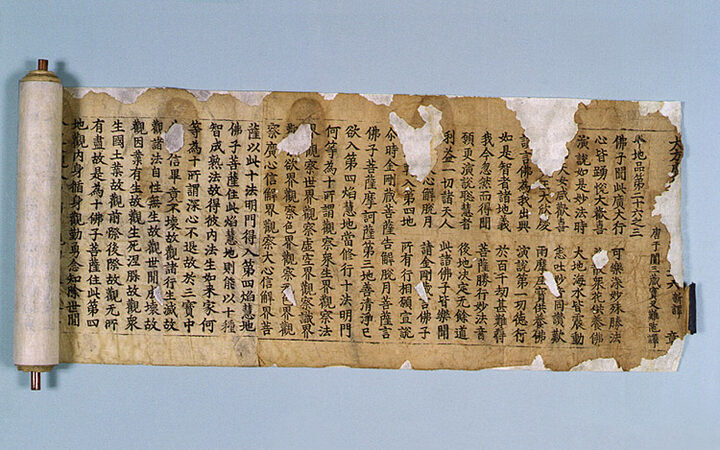 大方 新譯 章
唐于闐三藏實叉難陀譯
地品第二十六之三
佛子聞此廣大行 可樂深妙殊勝法
心皆踴悅大歡喜 散眾花供養佛
演說如是妙法時 大地海水皆震動
天女咸歡喜 悉吐妙音同讚歎
天王大欣 雨摩尼寶供養佛
言佛為我出興 演說第一功德行
如是智者諸地義 於百千劫甚難得
我今忽然而得聞 菩薩勝行妙法音
願更演說聡慧者 後地決定无餘道
利益一切諸天人 此諸佛子皆樂聞
心解脫月 請金剛言佛子
入第四地 所有行相願宣說
尒時金剛藏菩薩告解脫月菩薩言
佛子菩薩摩訶薩第三地善清淨已
欲入第四焰慧地當修行十法明門
何等為十所謂觀察眾生界觀察法
界觀察世界觀察虛空界觀察識界
觀欲界觀察色界觀察无界觀
察廣心信解界觀察大心信解界菩
薩以此十法明門得入第四焰慧地
佛子菩薩住此焰慧地則能以十種
智成熟法故得彼內法生如來家何
等為十所謂深心不退故於三寶中
信畢竟不壞故觀諸行生滅故
觀諸法自性无生故觀世間成壞故
觀因業有生故觀生死涅槃故觀眾
生國土業故觀前際後際故觀无所
有盡故是為十佛子菩薩住此第四
地觀內身循身觀勤勇念知除世間